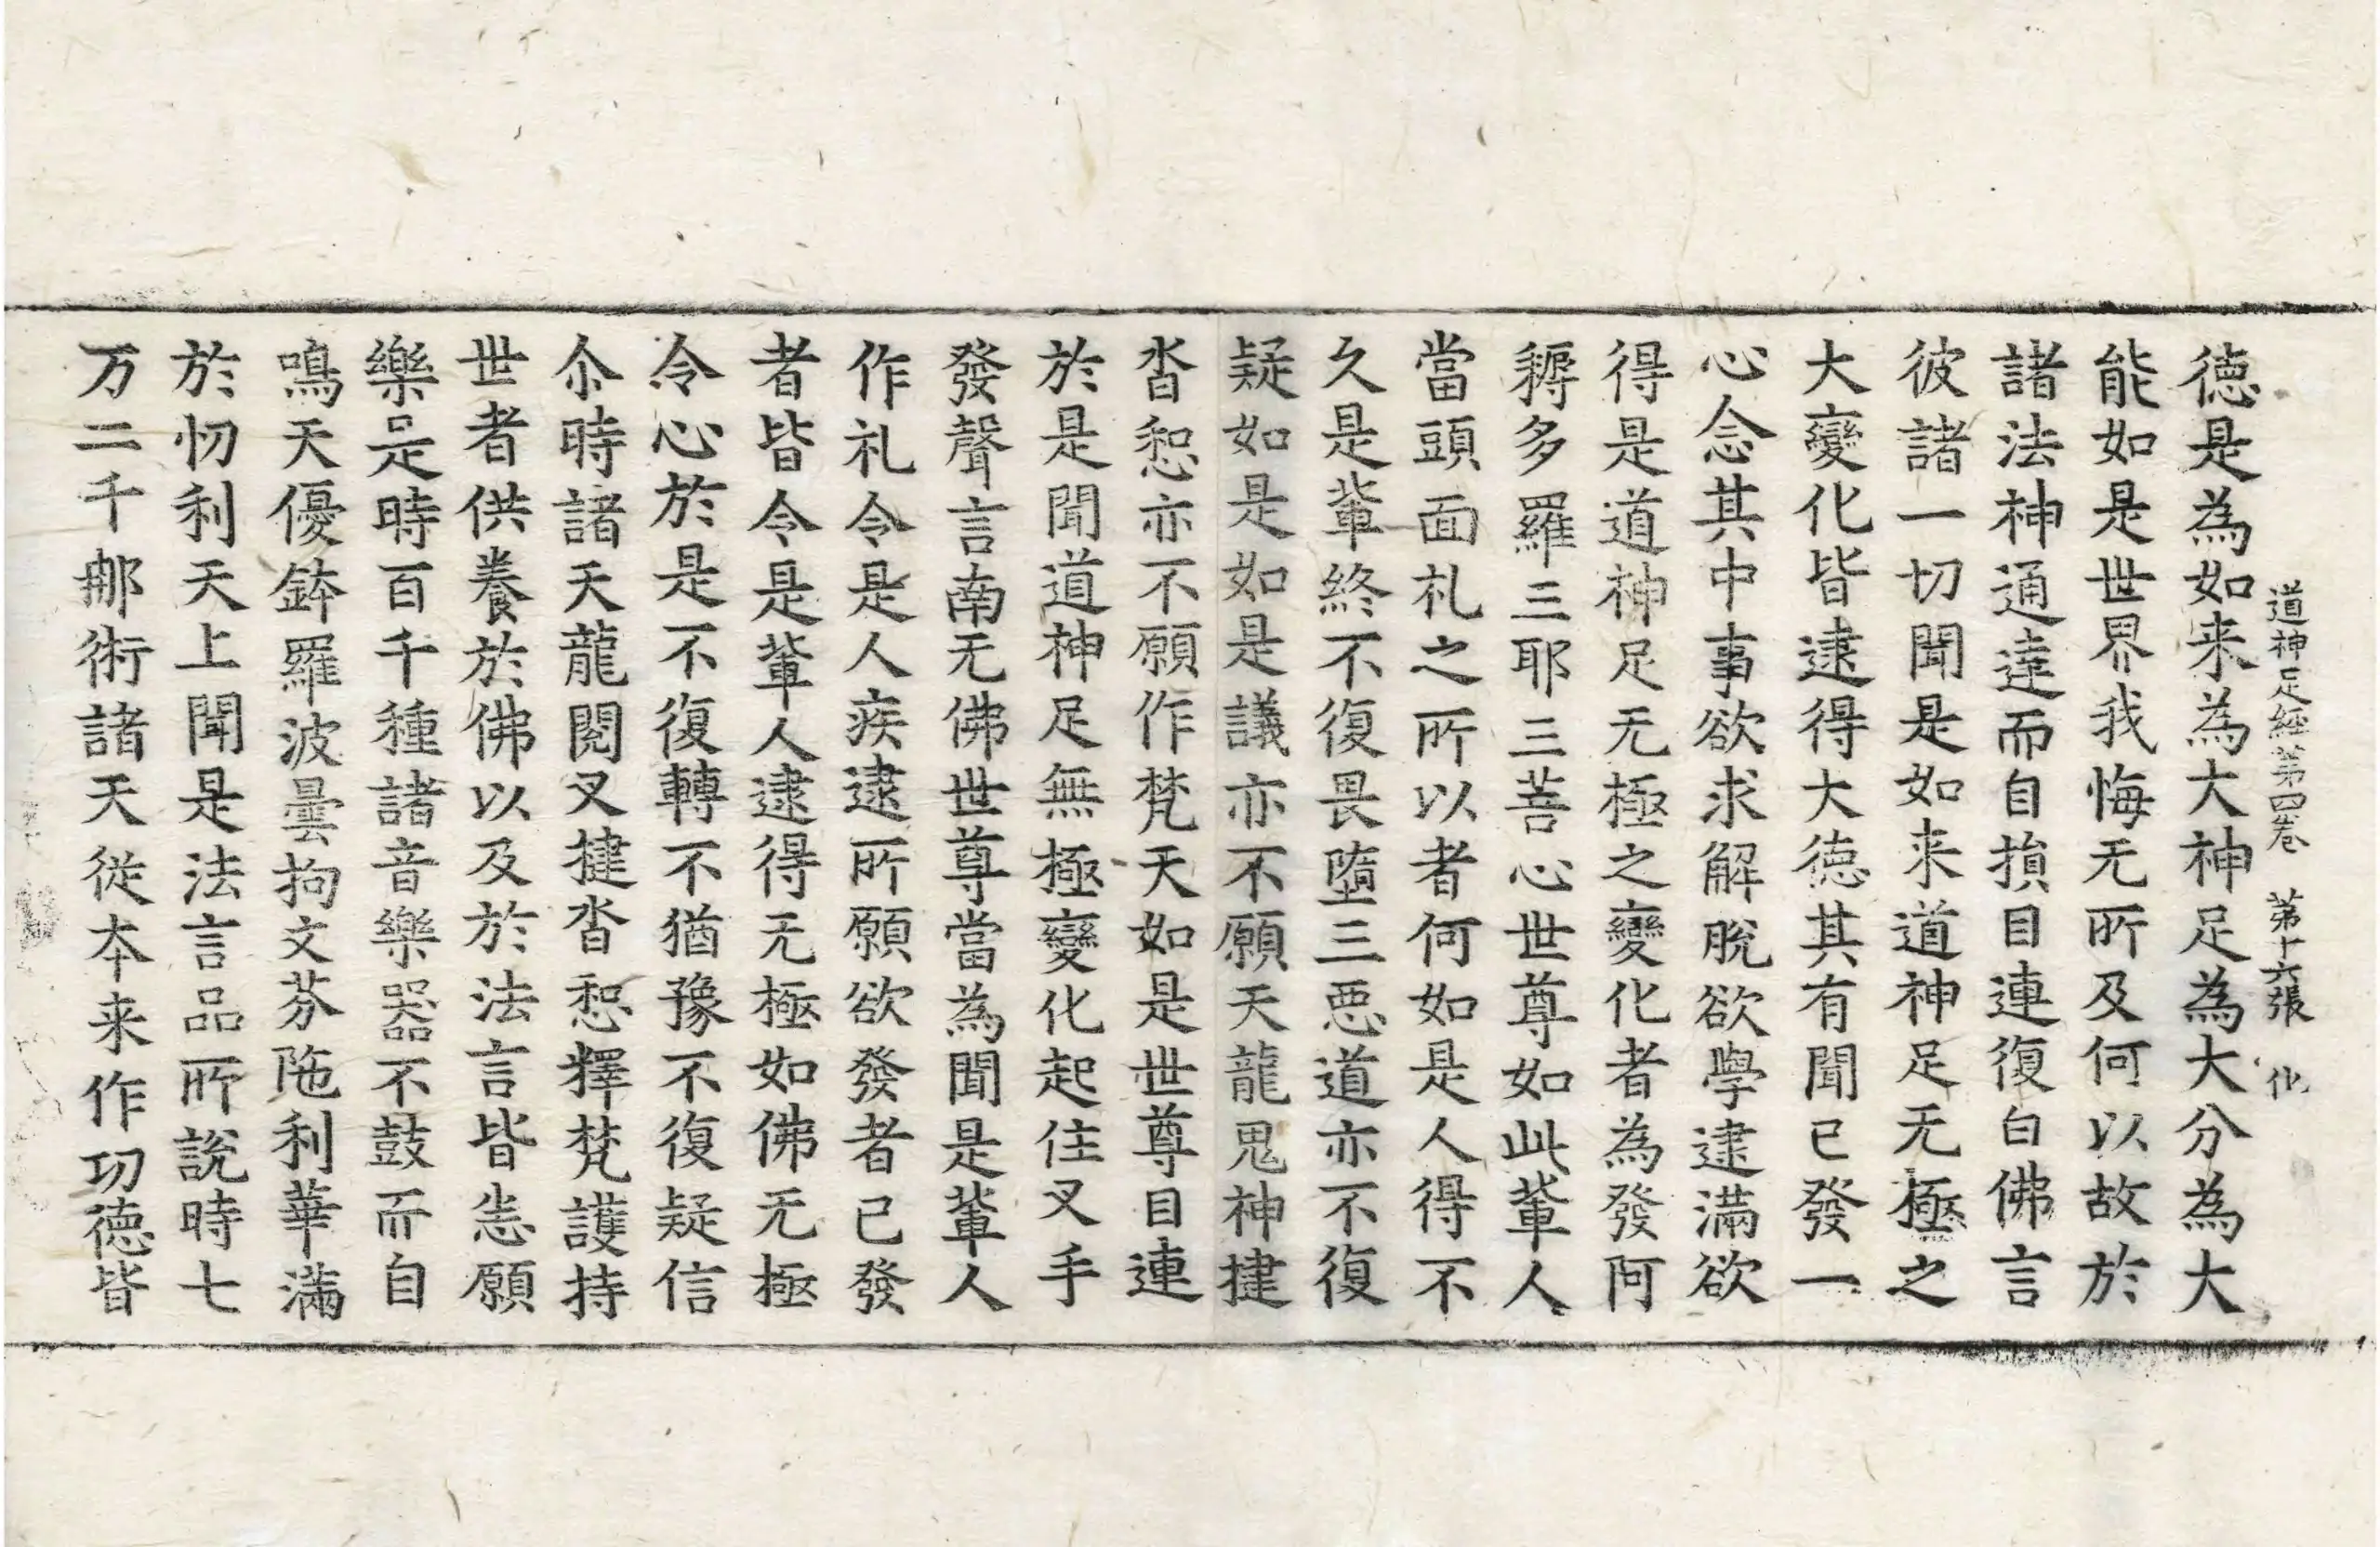 道神足經第四卷　第十六張　化
德是為如来為大神足為大分為大
能如是世界我悔无所及何以故於
諸法神通達而自損目連復白佛言
彼諸一切聞是如来道神足无極之
大變化皆逮得大德其有聞已發一
心念其中事欲求解脫欲學逮滿欲
得是道神足无極之變化者為發阿
耨多羅三耶三菩心世尊如此軰人
當頭面礼之所以者何如是人得不
久是軰終不復畏墮三惡道亦不復
疑如是如是議亦不願天龍鬼神揵
沓惒亦不願作梵天如是世尊目連
於是聞道神足無極變化起住叉手
發聲言南无佛世尊當為聞是軰人
作礼令是人疾逮所願欲發者已發
者皆令是軰人逮得无極如佛无極
令心於是不復轉不猶豫不復疑信
尒時諸天龍閱叉揵沓惒釋梵護持
世者供養於佛以及於法言皆恙願
樂是時百千種諸音樂器不鼓而自
鳴天優鉢羅波曇拘文芬陁利華滿
於忉利天上聞是法言品所說時七
万二千那術諸天從本来作功德皆